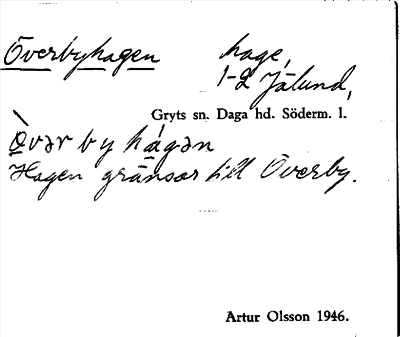 Överbyhagen hage,
1-2 Jälund,
Gryts sn. Daga hd. Söderm. l.
Ò̱vər by há̱gən
Hagen gränsar till Överby.
Artur Olsson 1946.